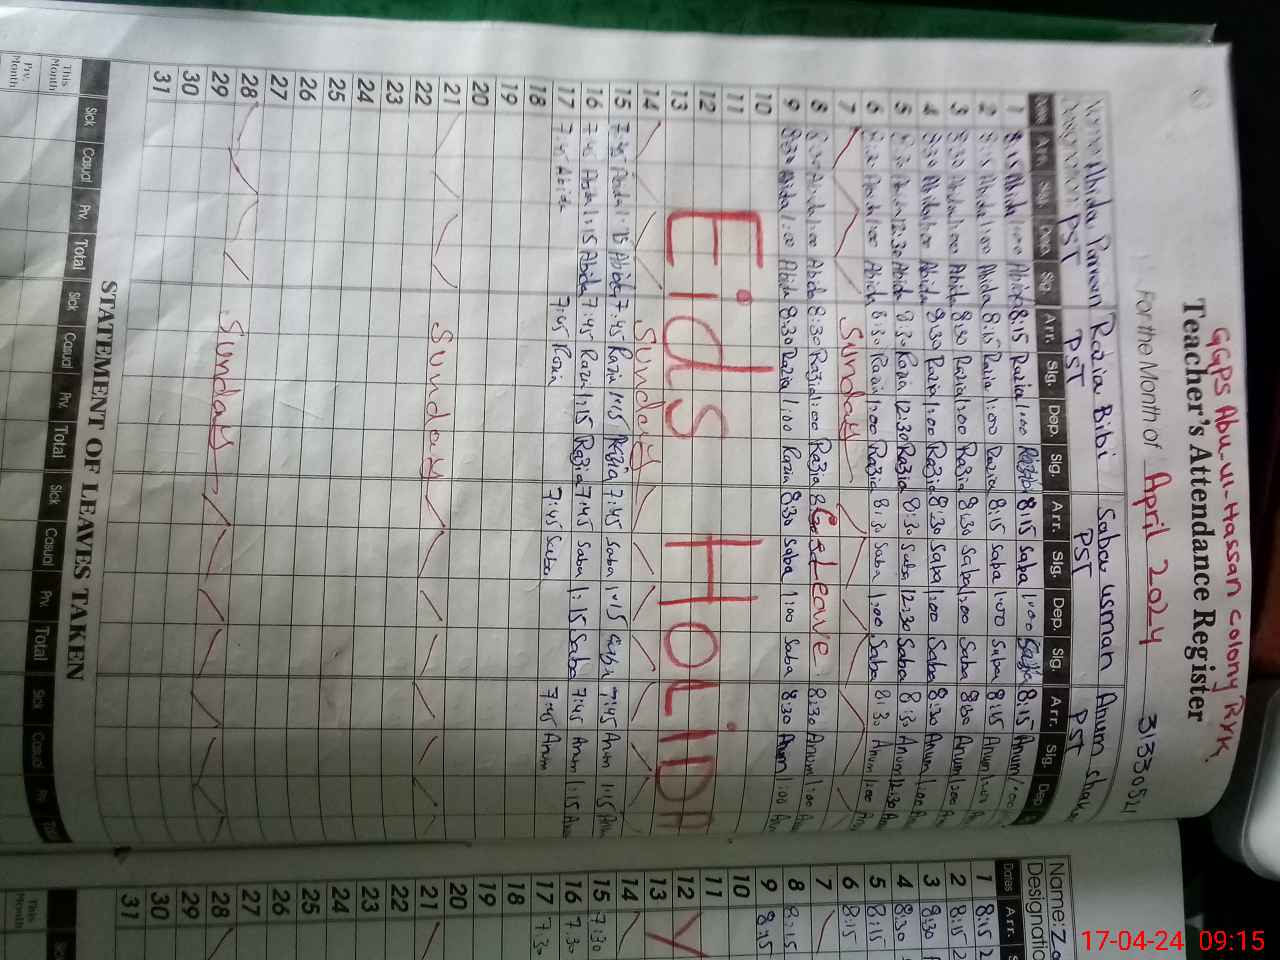 GGPS Abu-ul-Hassan Colony RYK.
Teacher's Attendance Register
For the Month of April 2024 31330521
Name Abida Parveen Razia Bibi Saba Usman Anum
PST PST PST PST
Date Arr. Sig. Dep. Sig. Arr. Sig. Dep. Sig. Arr. Sig. Dep. Sig. Arr. Sig. Dep
1 8:15 Abida 1:00 Abida 8:15 Razia 1:00 Razia 8:15 Saba 1:00 Saba 8:15 Anum 1:00
2 8:15 Abida 1:00 Abida 8:15 Razia 1:00 Razia 8:15 Saba 1:00 Saba 8:15 Anum 1:00
3 8:30 Abida 1:00 Abida 8:30 Razia 1:00 Razia 8:30 Saba 1:00 Saba 8:30 Anum 1:00
4 8:30 Abida 1:00 Abida 8:30 Razia 1:00 Razia 8:30 Saba 1:00 Saba 8:30 Anum 1:00
5 8:30 Abida 12:30 Abida 8:30 Razia 12:30 Razia 8:30 Saba 12:30 Saba 8:30 Anum 12:30
6 8:30 Abida 1:00 Abida 8:30 Razia 1:00 Razia 8:30 Saba 1:00 Saba 8:30 Anum 1:00
7 Sunday
8 8:30 Abida 1:00 Abida 8:30 Razia 1:00 Razia Leave 8:30 Anum 1:00
9 8:30 Abida 1:00 Abida 8:30 Razia 1:00 Razia 8:30 Saba 1:00 Saba 8:30 Anum 1:00
10
11
12 Eids HOLiDA
13
14 Sunday
15 7:45 Abida 1:15 Abida 7:45 Razia 1:15 Razia 7:45 Saba 1:15 Saba 7:45 Anum 1:15
16 7:45 Abida 1:15 Abida 7:45 Razia 1:15 Razia 7:45 Saba 1:15 Saba 7:45 Anum 1:15
17 7:45 Abida 7:45 Razia 7:45 Saba 7:45 Anum
18
19
20
21 Sunday
22
23
24
25
26
27
28 Sunday
29
30
31
STATEMENT OF LEAVES TAKEN
Sick Casual Prv. Total Sick Casual Prv. Total Sick Casual Prv. Total Sick Casual Prv. Total
This Month
Prv. Month
Name:
Designatio
Dates Arr.
1 8:15
2 8:15
3 8:30
4 8:30
5 8:15
6 8:15
7
8 8:15
9 8:15
10
11
12
13
14
15 7:30
16 7:30
17 7:30
18
19
20
21
22
23
24
25
26
27
28
29
30
31
This Month
17-04-24 09:15